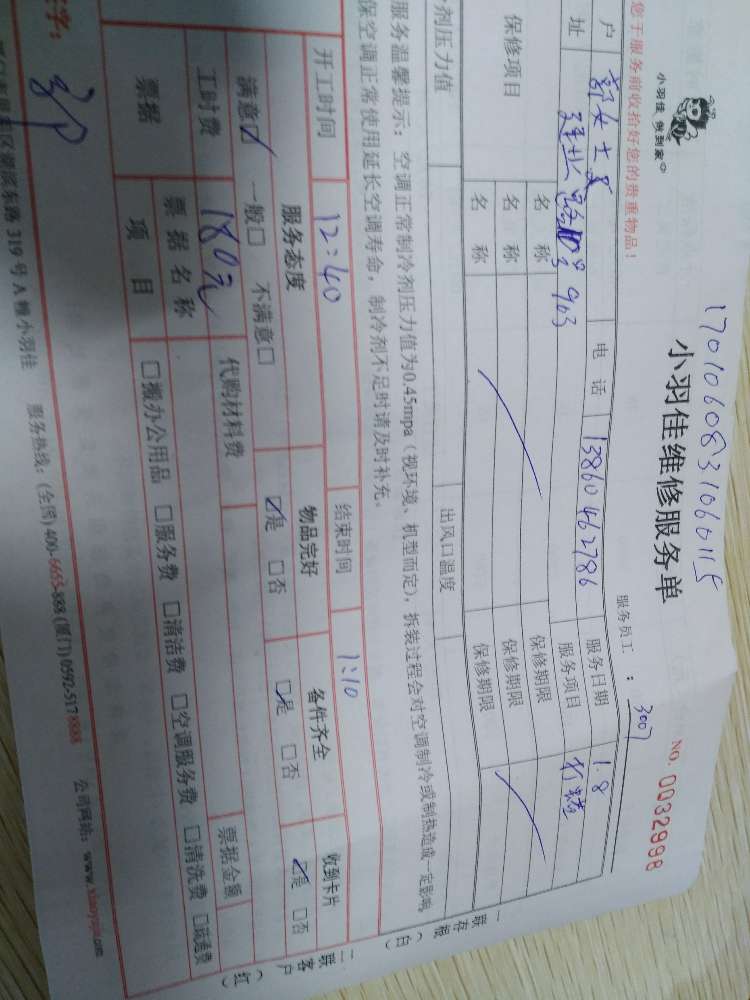 1701060831060115
小羽佳 做到家
小羽佳维修服务单
服务员工：3007
NO. 0032998
您于服务前收拾好您的贵重物品！
户 女士 电话 13860462786 服务日期 1.8
址 903 服务项目
保修项目 名称 保修期限
名称 保修期限
名称 保修期限
剂压力值 出风口温度
服务温馨提示：空调正常制冷剂压力值为0.45mpa（视环境、机型而定），拆装过程会对空调制冷或制热造成一定影响，
保空调正常使用延长空调寿命，制冷剂不足时请及时补充。
开工时间 12:40 结束时间 1:10
服务态度 物品完好 备件齐全 收到卡片
满意☑ 一般□ 不满意□ ☑是 □否 ☑是 □否 ☑是 □否
工时费 180元 代购材料费
票据 票据名称 票据金额
项目 □搬办公用品 □服务费 □清洁费 □空调服务费 □清洗费 □疏通费
签字：
319号A幢小羽佳 服务热线：(全国) 400-6653-888 (厦门) 0592-5178888 公司网站：www.xiaoyujia.com
一联存根（白）
二联客户（红）